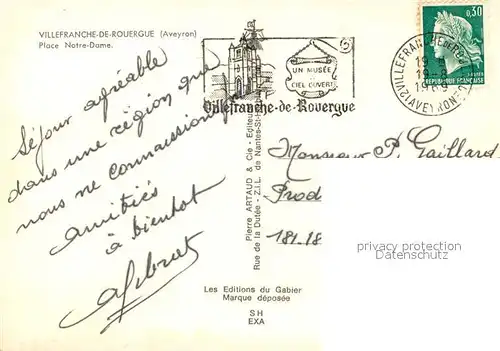 VILLEFRANCHE-DE-ROUERGUE (Aveyron)
Place Notre-Dame.
Séjour agréable
dans une région que
nous ne connaissions
amitiés
à bientôt
UN MUSÉE
CIEL OUVERT
Villefranche-de-Rouergue
0,30
REPUBLIQUE FRANCAISE
VILLEFRANCHE DE R
19 H
19-8
1969
(12) AVEYRON
Pierre ARTAUD & Cie - Editeurs
Rue de la Dutée - Z.I.L. de Nantes-St-H
Monsieur P. Gaillard
Prod
181-18
privacy protection
Datenschutz
Les Editions du Gabier
Marque déposée
SH
EXA